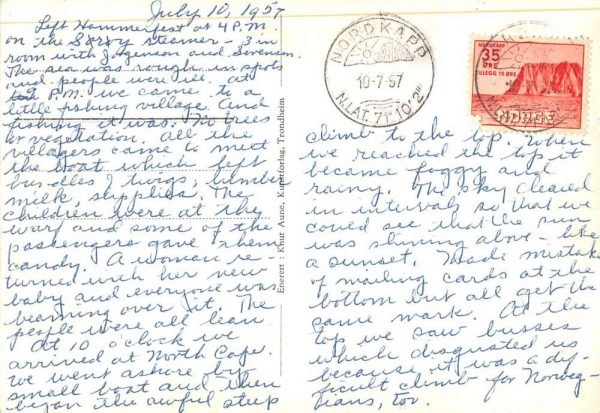 July 10, 1957
Left Hammerfest at 4 P.M.
on the steamer - 3 in
room with Jorgenson and Swenson.
The sea was rough in spots
and people were ill. at
7 P.M. we came to a
little fishing village and
fishing it was. No trees
or vegetation. All the
villagers came to meet
the boat which left
bundles of twigs, lumber
milk, supplies. The
children were at the
warf and some of the
passengers gave them
candy. A woman re-
turned with her new
baby and everyone was
beaming over it. The
people were all lean
At 10 o'clock we
arrived at North Cape.
We went ashore by
small boat and then
began the awful steep
Eneret : Knut Aune, Kunstforlag, Trondheim
NORDKAPP
10-7-57
N.LAT. 71° 10' 2"
NORDKAPP
35
ØRE
TILLEGG 10 ØRE
NORGE
climb to the top. When
we reached the top it
became foggy and
rainy. The sky cleared
in intervals so that we
could see that the sun
was shining above - like
a sunset. Made mistake
of mailing cards at the
bottom but all get the
same mark. At the
top we saw busses
which disgusted us
because it was a dif-
ficult climb for Norweg-
ians, too.